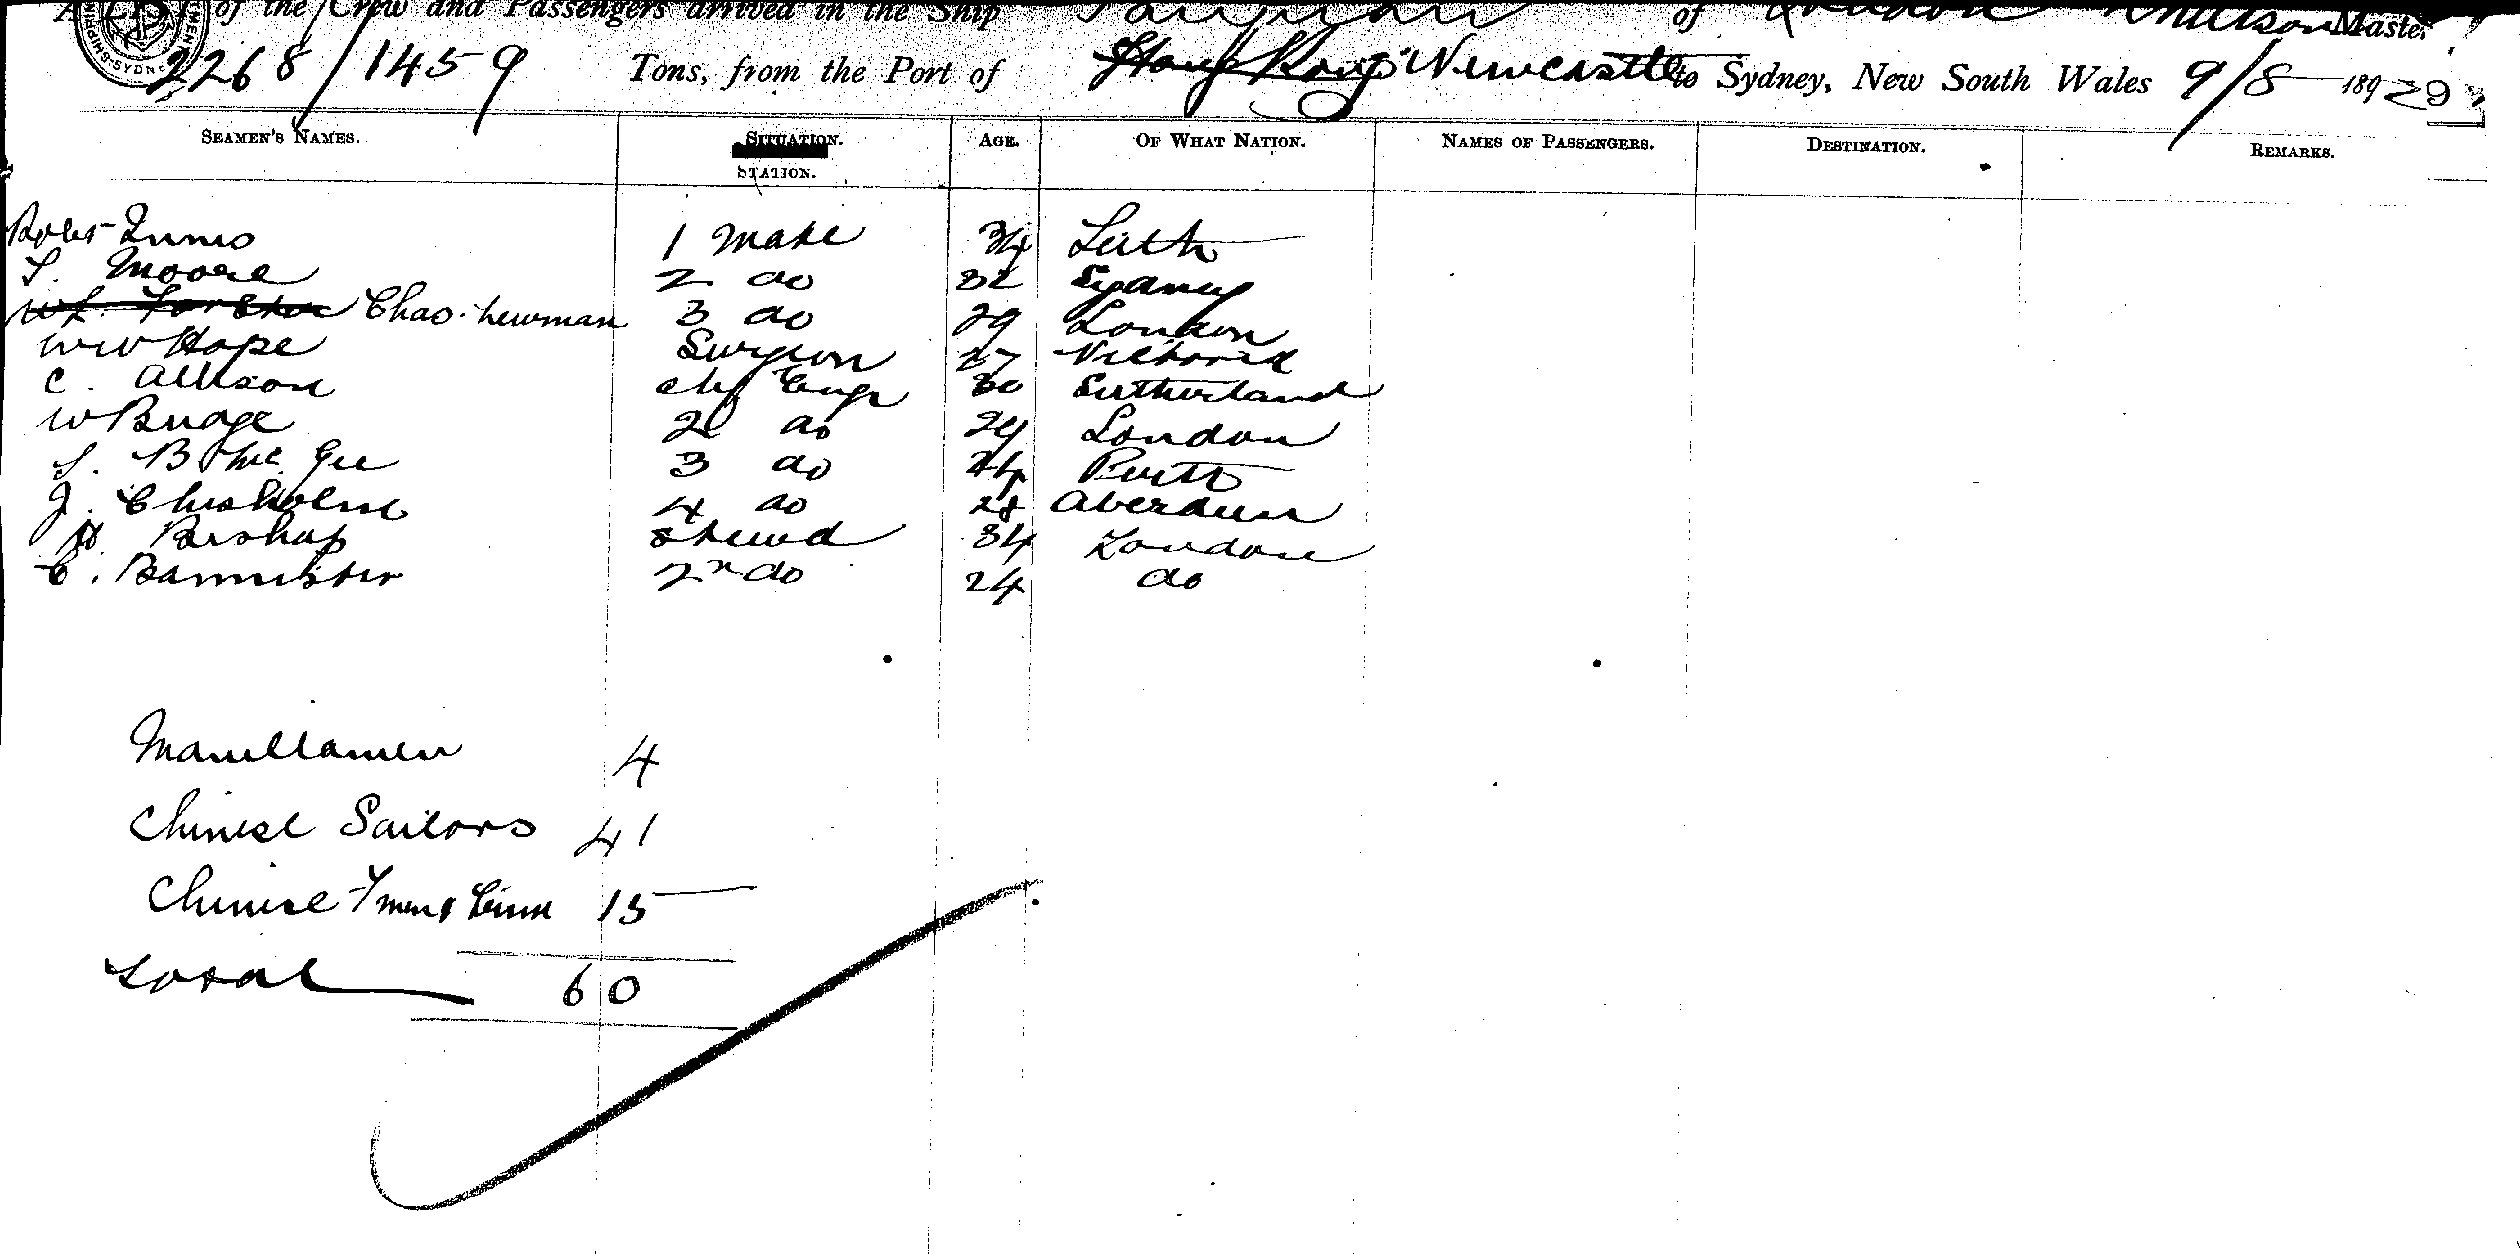 of the Crew and Passengers arrived in the Ship of London Master
2268/1459 Tons, from the Port of Hong Kong Newcastle to Sydney, New South Wales 9/8 1892
SEAMEN'S NAMES. SITUATION. AGE. OF WHAT NATION. NAMES OF PASSENGERS. DESTINATION. REMARKS.
STATION.
Robt Innes 1 Mate 34 Leith
S. Moore 2 do 32 Sydney
Chas. Newman 3 do 29 London
WW Hope Surgeon 27 Victoria
C. Allison chf Engr 30 Sutherland
W Budge 2 do 29 London
S. B McGee 3 do 24 Perth
J. Chisholm 4 do 28 Aberdeen
H. Bishop Stewd 34 London
C. Bannister 2nd do 24 do
Manillamen 4
Chinese Sailors 41
Chinese 15
Total 60